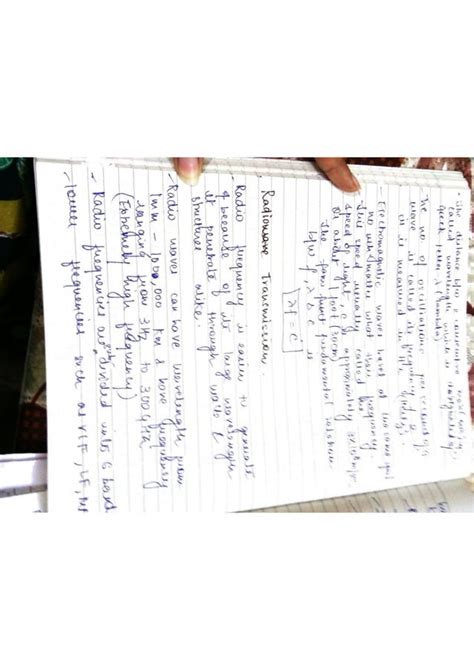 - The distance b/w 2 consecutive maxima
is called wavelength which is designated by
greek letter λ (lambda).
The no of oscillations per second of a
wave is called its frequency f &
it is measured in Hz
- Electromagnetic wave travel at the same speed
no matter what their frequency.
This speed usually called the
speed of light, c is approximately
or about 1 foot (30cm)
fundamental relation
b/w f, λ & c is
λf = c
Radiowave Transmission.
- Radio frequency is easier to generate
& because of its large wavelength
it penetrate through walls &
structures alike.
- Radio waves can have wavelength from
1mm - 100,000 km & have frequency
ranging from 3Hz to 300GHz
(Extremely high frequency)
- Radio frequencies are divided into 6 bands
- lower frequencies such as VLF, LF, MF